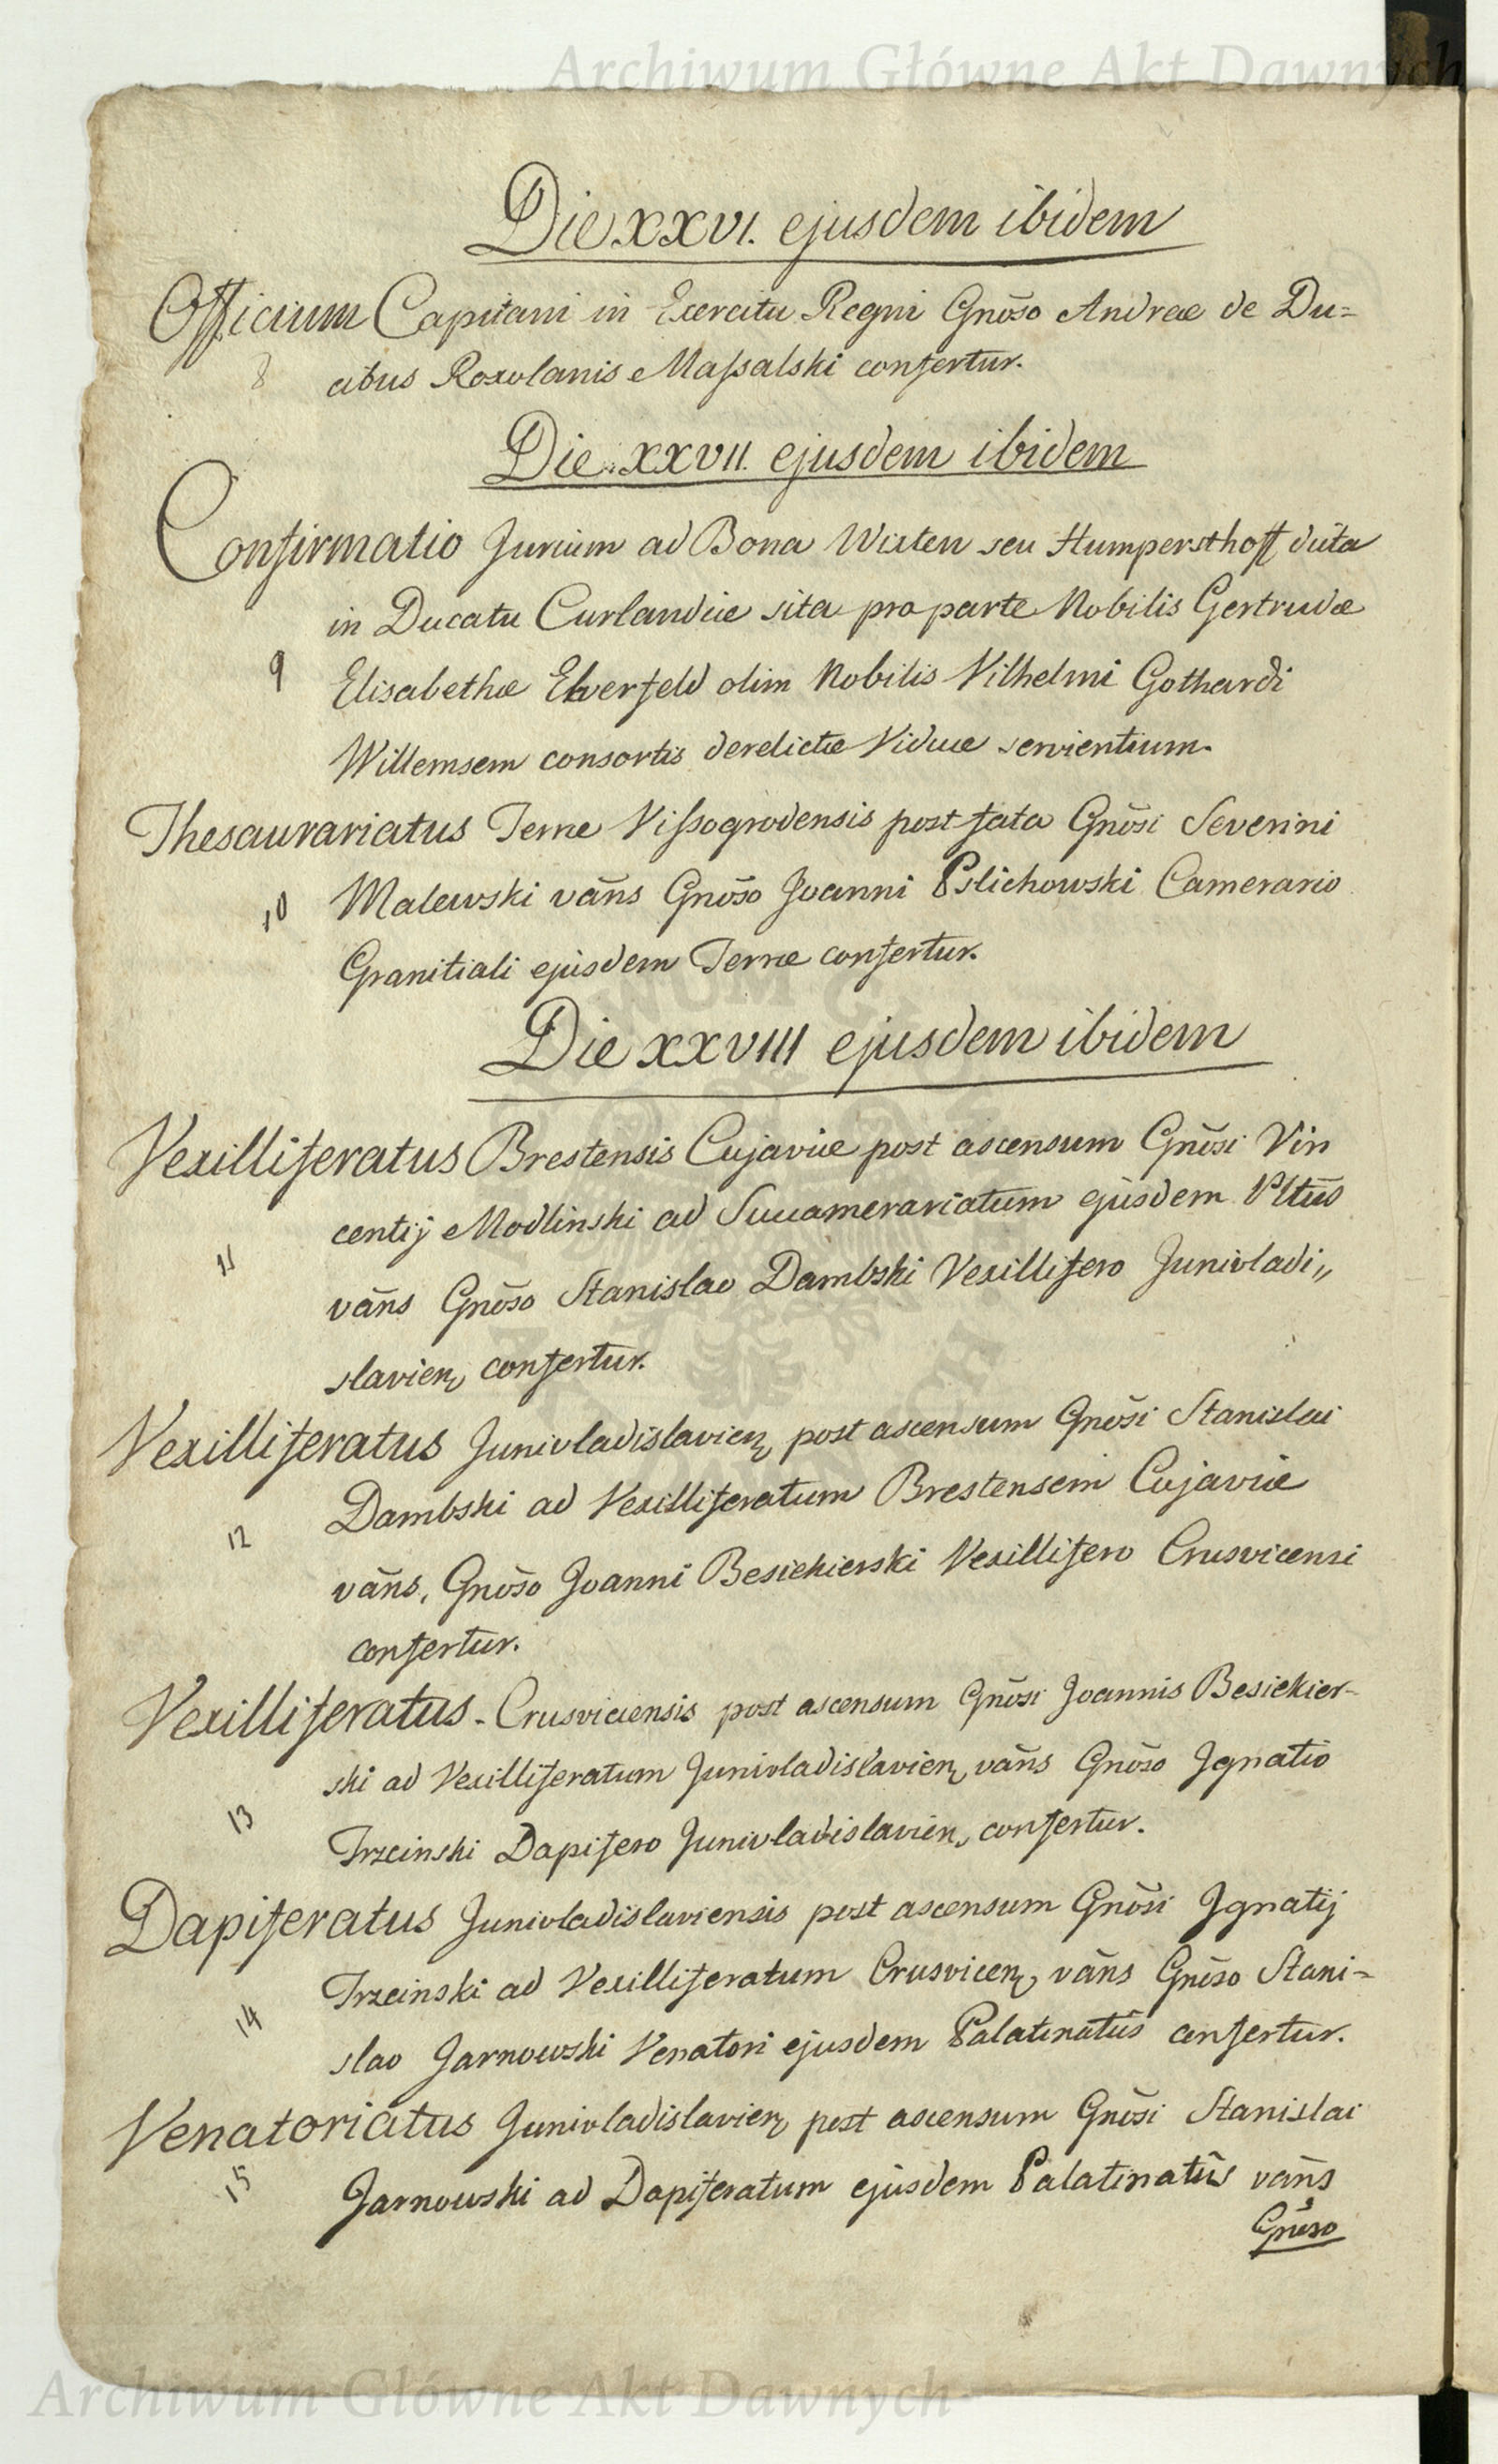 Archiwum Główne Akt Dawnych
Die XXVI. ejusdem ibidem
Officium Capitani in Exercitu Regni Gnõso Andreæ de Du=
cibus Roxolanis Massalski confertur.
8
Die XXVII. ejusdem ibidem
Confirmatio Jurium ad Bona Wixten seu Humpersthoff dicta
in Ducatu Curlandiæ sita pro parte Nobilis Gertrudæ
9 Elisabethæ Elverfeld olim Nobilis Vilhelmi Gothardi
Willemsem consortis derelictæ Viduæ servientium.
Thesaurariatus Terræ Vissogrodensis post fata Gnõsi Severini
10 Malewski vãns Gnõso Joanni Pslichowski Camerario
Granitiali ejusdem Terræ confertur.
Die XXVIII ejusdem ibidem
Vexilliferatus Brestensis Cujaviæ post ascensum Gnõsi Vin
centij Modlinski ad Succamerariatum ejusdem Pltũs
11 vãns Gnõso Stanislao Dambski Vexillifero Junivladi„
slavien, confertur.
Vexilliferatus Junivladislavien, post ascensum Gnõsi Stanislai
12 Dambski ad Vexilliferatum Brestensem Cujaviæ
vãns, Gnõso Joanni Besiekierski Vexillifero Crusvicensi
confertur.
Vexilliferatus Crusviciensis post ascensum Gnõsi Joannis Besiekier-
ski ad Vexilliferatum Junivladislavien, vãns Gnõso Ignatio
13 Trzcinski Dapifero Junivladislavien, confertur.
Dapiferatus Junivladislaviensis post ascensum Gnõsi Ignatij
Trzcinski ad Vexilliferatum Crusvicen, vãns Gnõso Stani=
14 slao Jarnowski Venatori ejusdem Palatinatûs confertur.
Venatoriatus Junivladislavien, post ascensum Gnõsi Stanislai
15 Jarnowski ad Dapiferatum ejusdem Palatinatûs vãns
Gnõso
Archiwum Główne Akt Dawnych